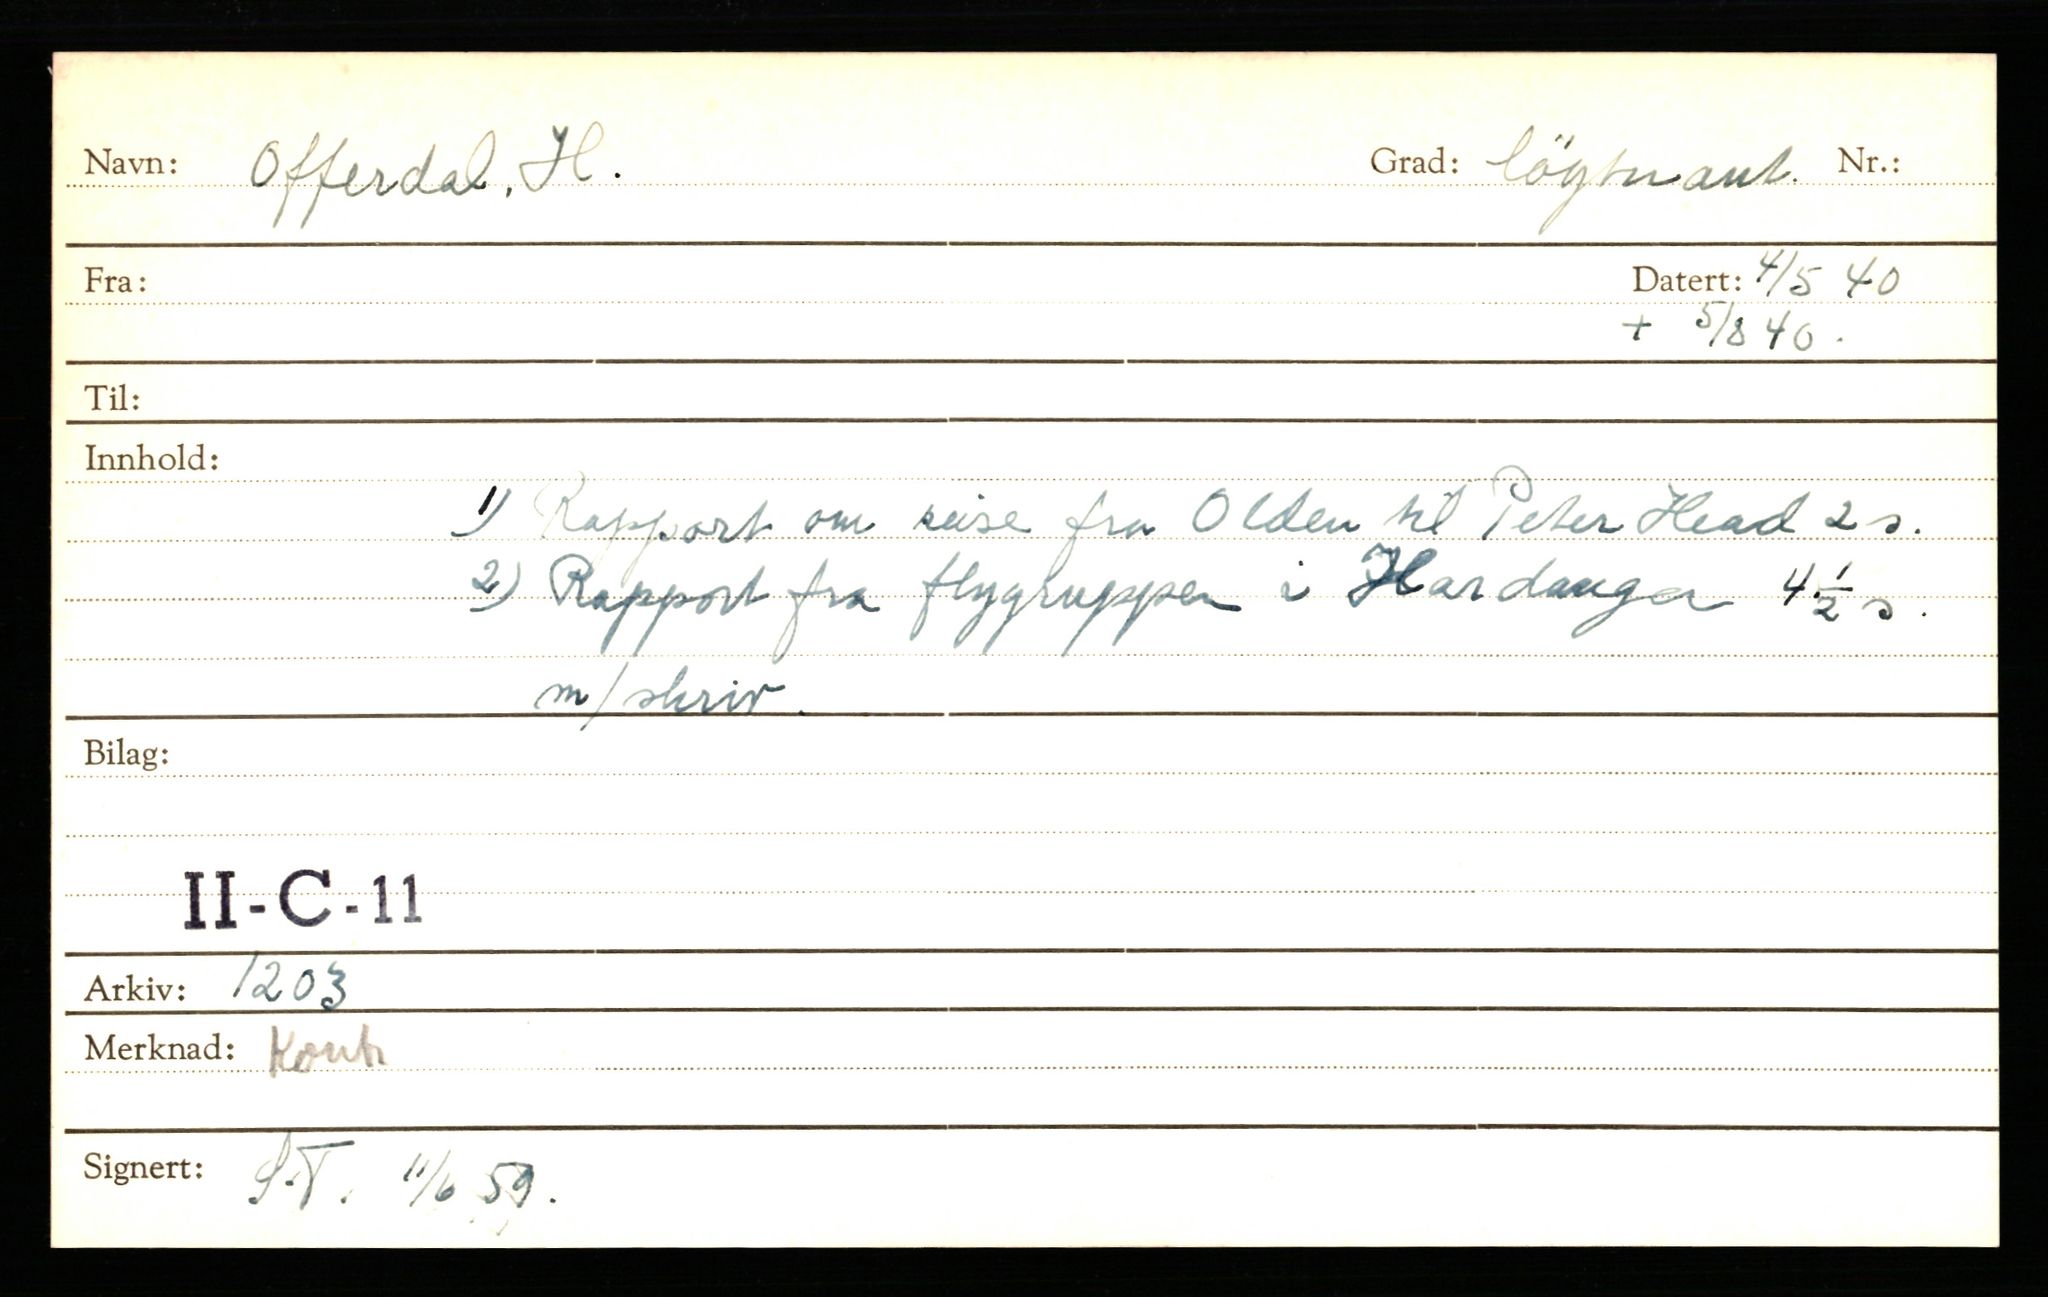 Navn: Offerdal, H. Grad: löytnant. Nr.:
Fra: Datert: 4/5 40
+ 5/8 40.
Til:
Innhold:
1) Rapport om reise fra Olden til Peter Head 2 s.
2) Rapport fra flygruppen i Hardanger 4 1/2 s.
m/skriv.
Bilag:
II-C-11
Arkiv: 1203
Merknad: Kontr
Signert: S.T. 11/6 59.